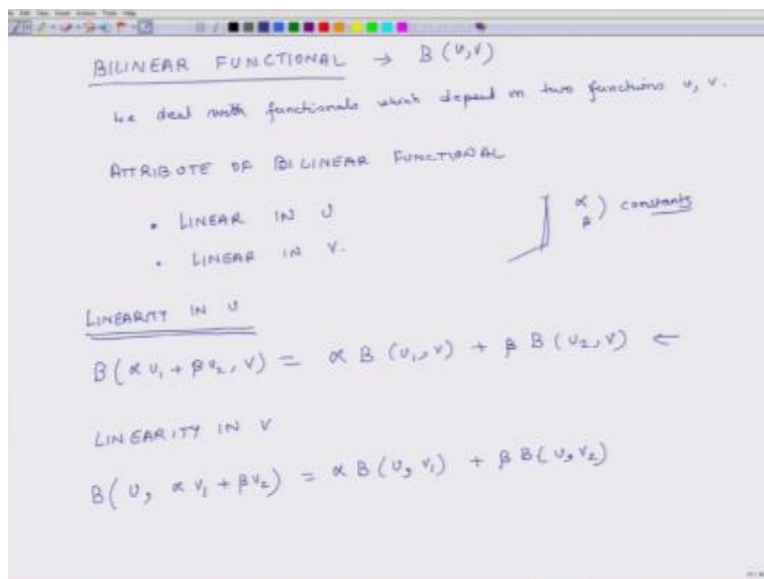 BILINEAR FUNCTIONAL → B (U,V)
We deal with functionals which depend on two functions u, v.
ATTRIBUTE OF BILINEAR FUNCTIONAL
• LINEAR IN U
α ) constants
β
• LINEAR IN V.
LINEARITY IN U
B(αU₁ + βU₂, V) = α B (U₁,V) + β B (U₂,V) ←
LINEARITY IN V
B( U, αV₁ + βV₂) = α B (U, V₁) + β B( U, V₂)